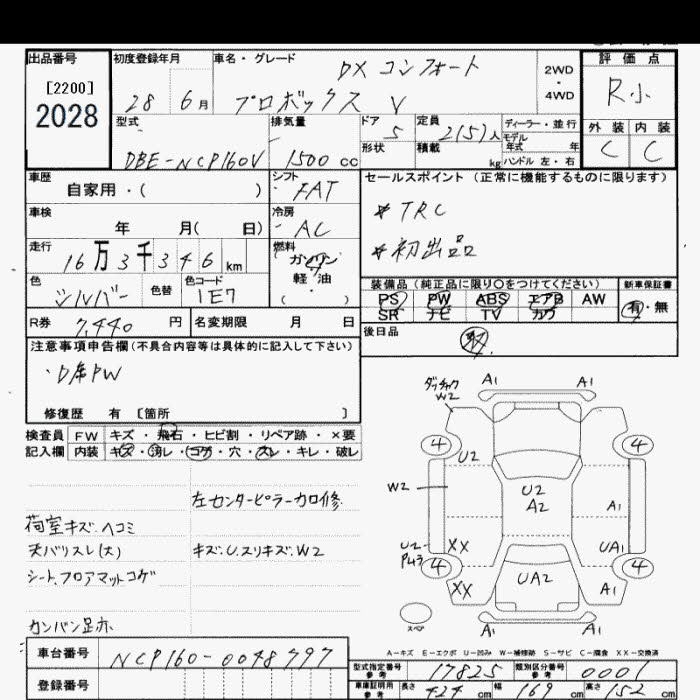 出品番号
[2200]
2028
初度登録年月
28 6月
車名・グレード
DX コンフォート
プロボックス V
2WD
・
4WD
評価点
R小
外装 内装
C C
型式
DBE-NCP160V
排気量
1500 cc
ドア 5
形状
定員 2(5)人
積載 kg
ディーラー・並行
モデル
年式 年
ハンドル 左・右
車歴
自家用・( )
シフト
FAT
セールスポイント(正常に機能するものに限ります)
* TRC
* 初出品
車検
年 月( 日)
冷房
AC
走行
16万3千346km
燃料
ガソリン
軽・油
( ・ )
色
シルバー
色替
色コード
1E7
装備品(純正品に限り○をつけてください)
PS PW ABS エアB AW
SR ナビ TV カワ
新車保証書
有・無
R券
7,440円
名変期限 月 日
後日品
注意事項申告欄(不具合内容等は具体的に記入して下さい)
修復歴 有 [箇所 ]
検査員
記入欄
FW キズ・飛石・ヒビ割・リペア跡・×要
内装 キズ・汚レ・コゲ・穴・スレ・キレ・破レ
左センターピラーカロ修
荷室キズ.ヘコミ
天バリスレ(大)
キズ.U.スリキズ.W2
シート.フロアマットコゲ
カンバン跡
車台番号
NCP160-0048797
登録番号
A1 A1
W2
4 4
U2
W2
U2
A2
A1
U2
XX
UA1
4 4
XX
UA2
A1
スペア
A1 A1
A-キズ E-エクボ U-凹み W-補修跡 S-サビ C-腐食 XX-交換済
型式指定番号
参考
17825
類別区分番号
参考
0001
車庫証明用
参考
長さ 424 cm 幅 169 cm 高さ 152 cm